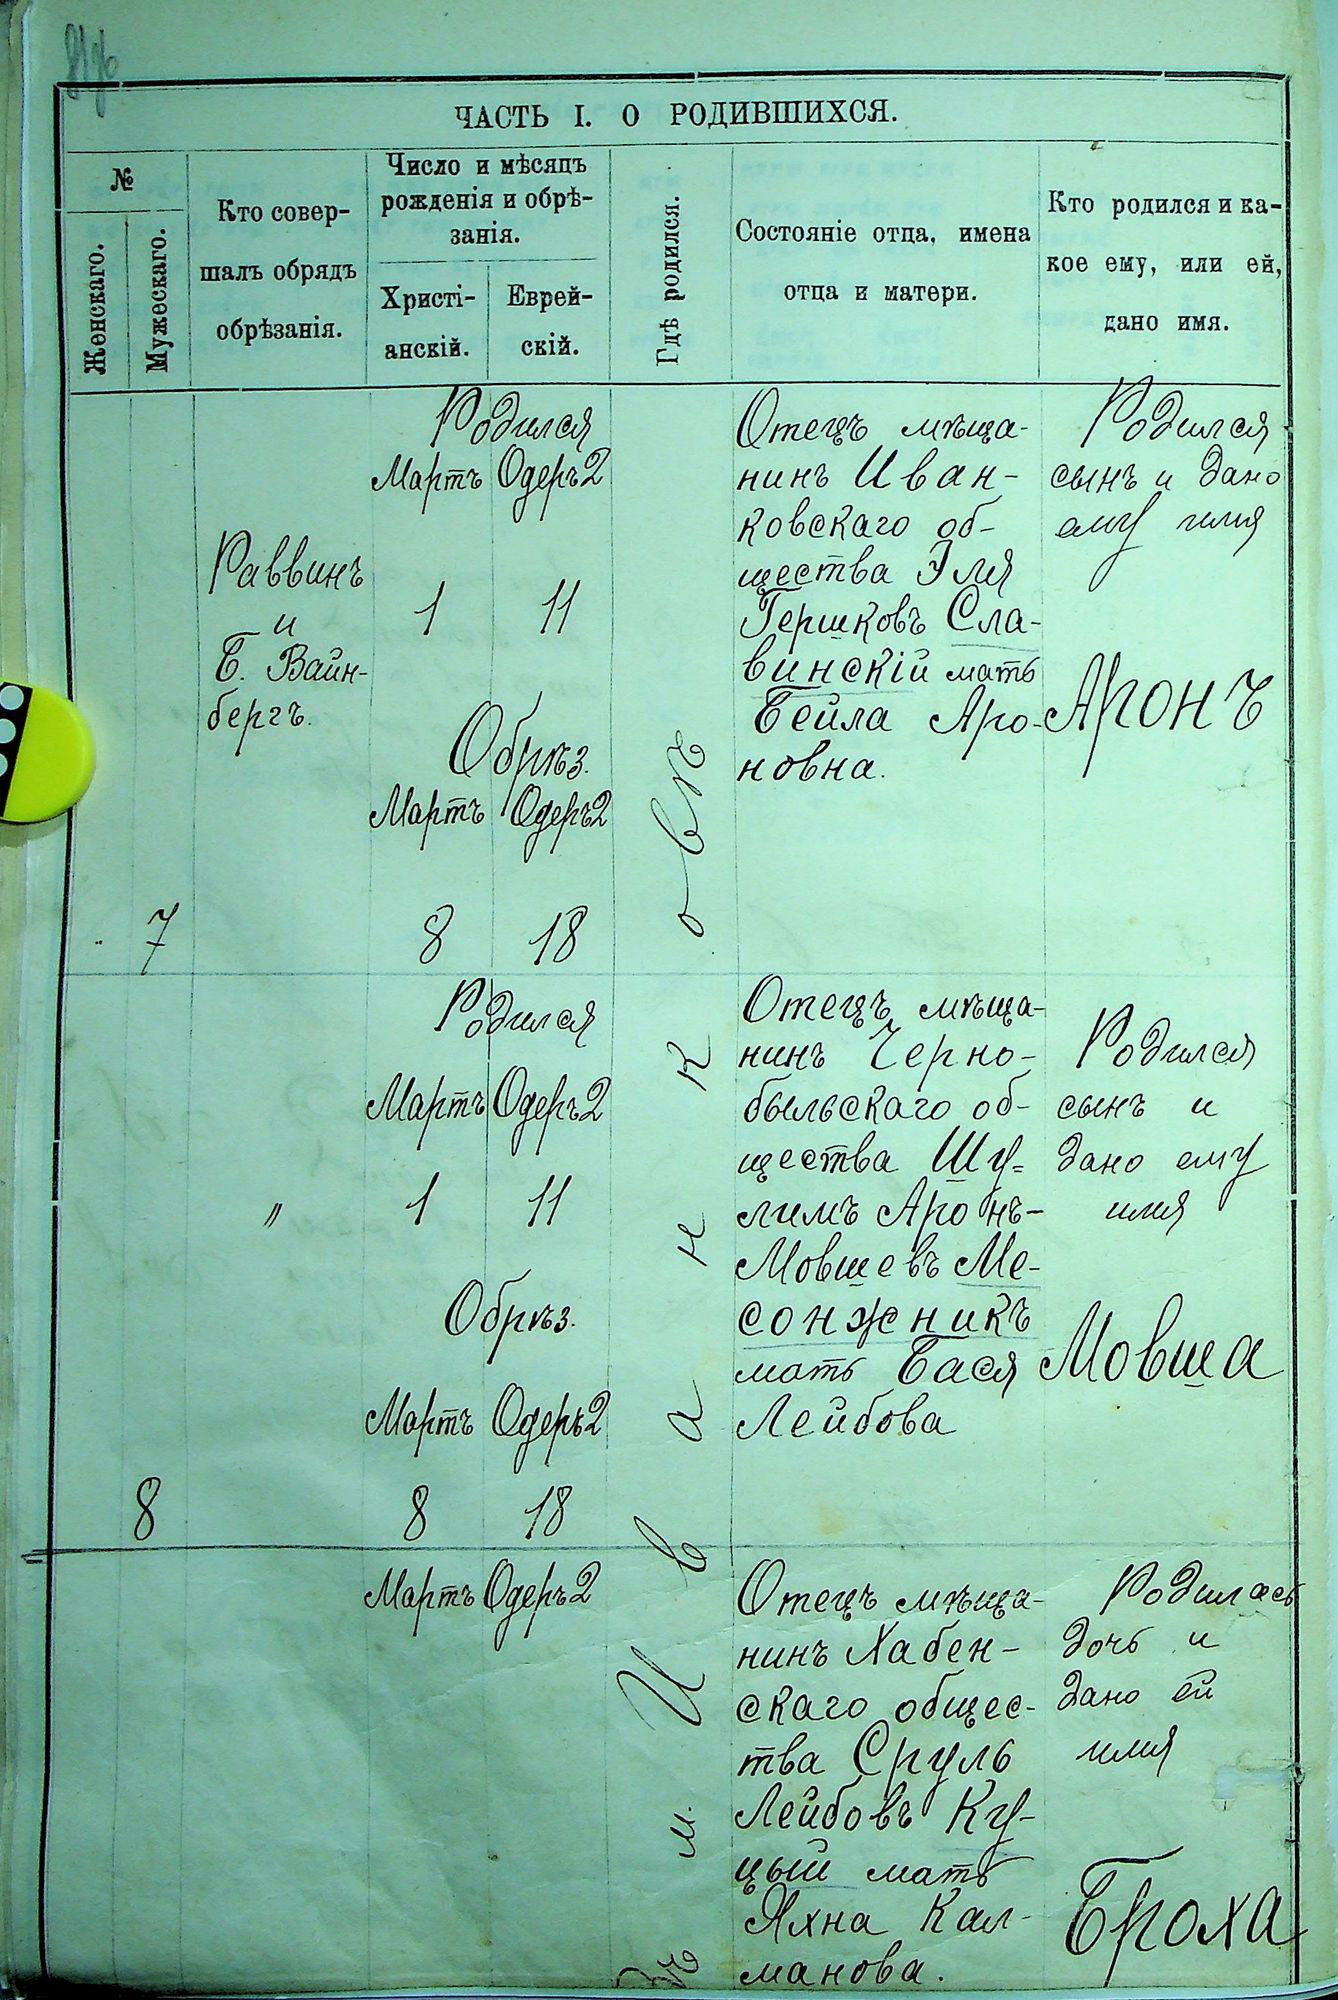 ЧАСТЬ I. О РОДИВШИХСЯ.
№
Женскаго.
Мужескаго.
Кто совер-
шалъ обрядъ
обрѣзанія.
Число и мѣсяцъ
рожденія и обрѣ-
занія.
Христі-
анскій.
Еврей-
скій.
Гдѣ родился.
Состояніе отца, имена
отца и матери.
Кто родился и ка-
кое ему, или ей,
дано имя.
7
Раввинъ
и
Б. Вайн-
бергъ.
Родился
Мартъ Одеръ 2
1 11
Обрѣз.
Мартъ Одеръ 2
8 18
Отецъ мѣща-
нинъ Иван-
ковскаго об-
щества Эля
Гершковъ Сла-
винскій мать
Бейла Аро-
новна.
Родился
сынъ и дано
ему имя
Аронъ
8
"
Родился
Мартъ Одеръ 2
1 11
Обрѣз.
Мартъ Одеръ 2
8 18
Отецъ мѣща-
нинъ Черно-
быльскаго об-
щества Шу-
лимъ Аронъ-
Мовшевъ Ме-
сонжникъ
мать Бася
Лейбова
Родился
сынъ и
дано ему
имя
Мовша
Мартъ Одеръ 2
Отецъ мѣща-
нинъ Хабен-
скаго общес-
тва Сруль
Лейбовъ Ку-
цый мать
Яхна Кал-
манова.
Родилась
дочь и
дано ей
имя
Броха
Въ м. Иванковѣ